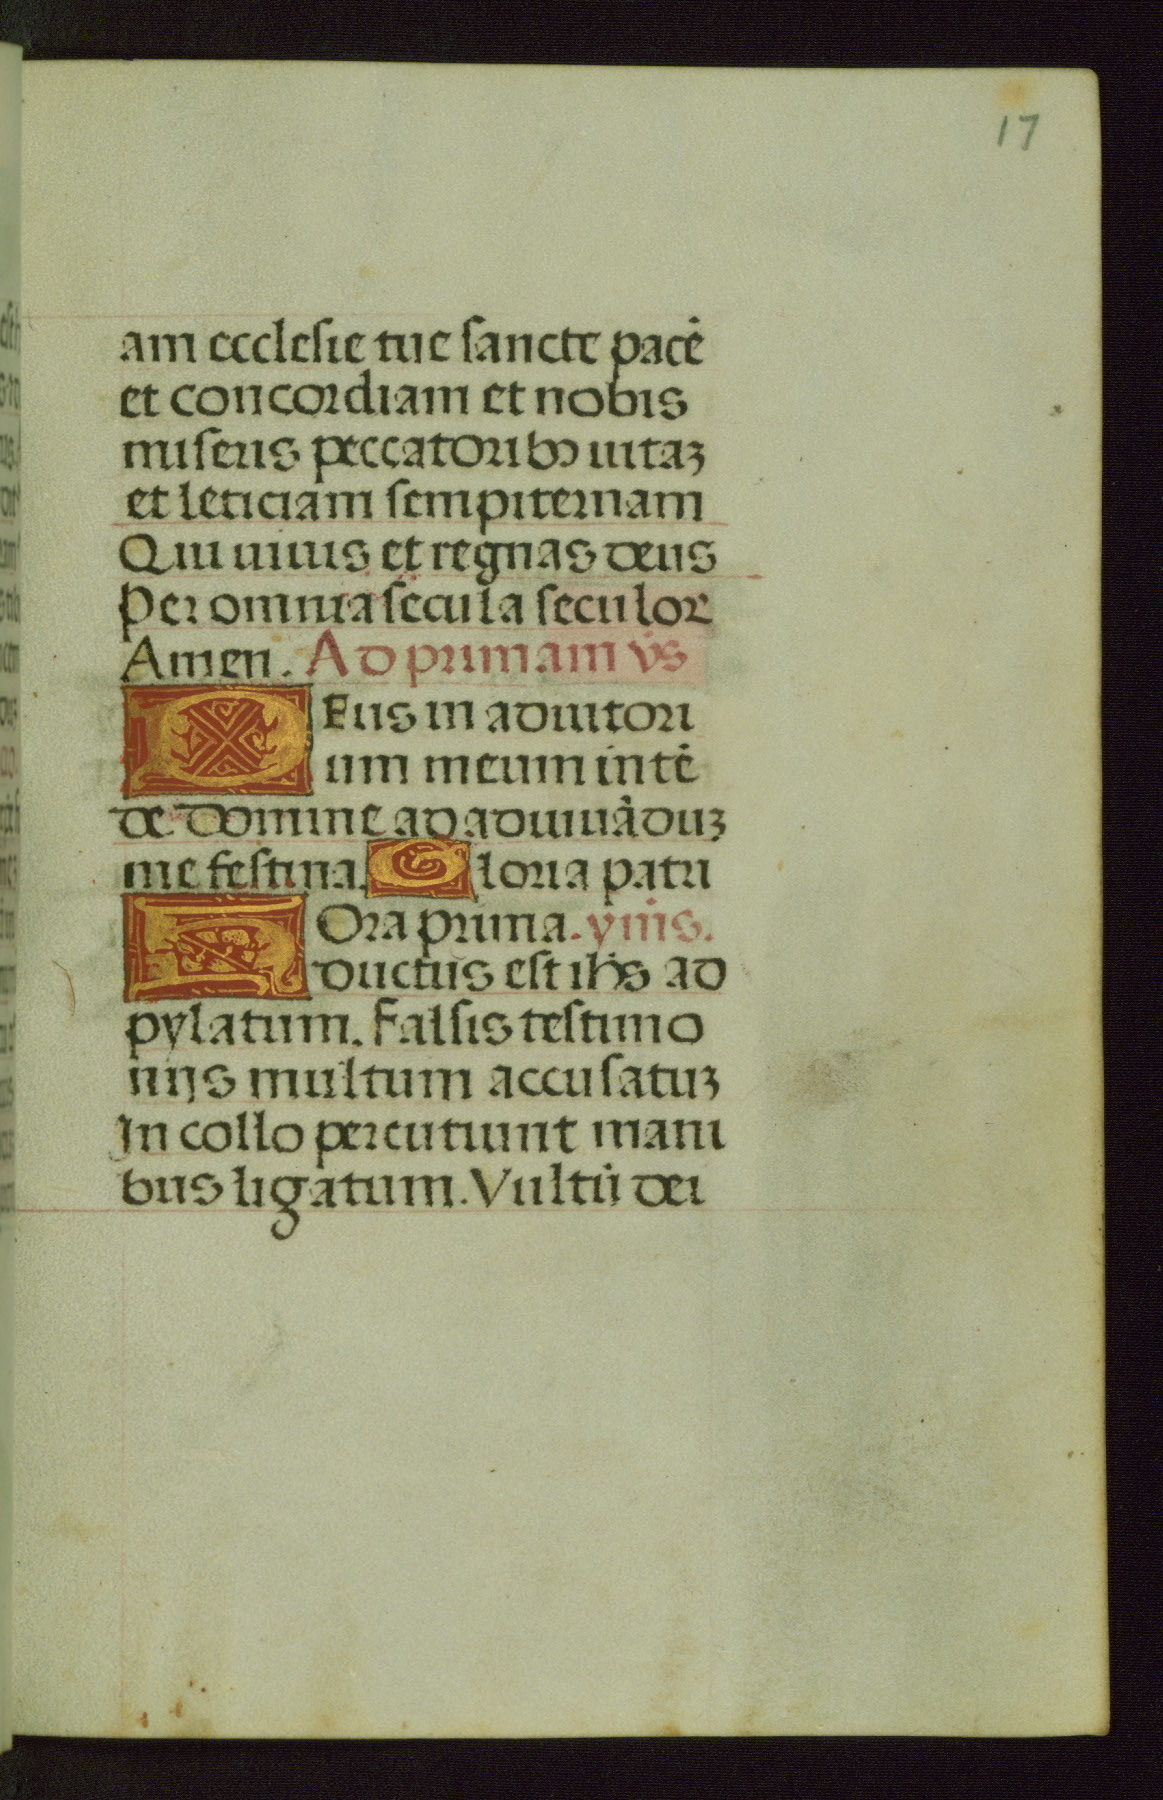 17
am ecclesie tue sancte pacē
et concordiam et nobis
miseris peccatoribꝰ uitaꝫ
et leticiam sempiternam
Qui uiuis et regnas deus
Per omnia secula seculoꝛ
Amen. Ad primam v̄s
DEus in adiutori
um meum intē
de Domine ad adiuuāduꝫ
me festina. Gloria patri
HOra prima. ymis.
Ductus est ih̄s ad
pylatum. Falsis testimo
nijs multum accusatuꝫ
In collo percutiunt mani
bus ligatum. Vultū dei